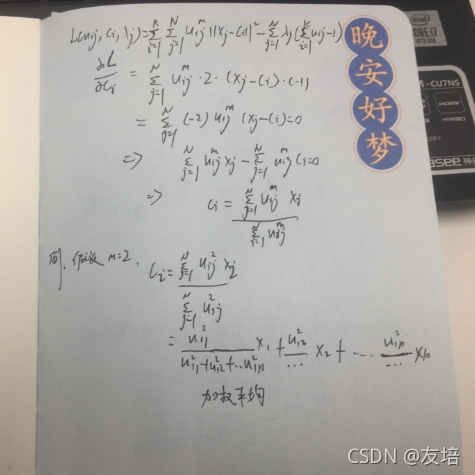 L(uij, ci, λj)=∑_{i=1}^{k} ∑_{j=1}^{N} uij^m ||xj-ci||² - ∑_{j=1}^{N} λj(∑_{i=1}^{k} uij-1)
∂L/∂ci = ∑_{j=1}^{N} uij^m · 2 · (xj-ci)·(-1)
= ∑_{j=1}^{N} (-2) uij^m (xj-ci)=0
=> ∑_{j=1}^{N} uij^m xj - ∑_{j=1}^{N} uij^m ci=0
=> ci = ∑_{j=1}^{N} uij^m xj / ∑_{j=1}^{N} uij^m
例, 假设 m=2, ci = ∑_{j=1}^{N} uij² xj / ∑_{j=1}^{N} uij²
= ui1² / (ui1²+ui2²+...ui10²) x1 + ui2²/... x2 + ... ui10²/... x10
加权平均
晚安好梦
-CU7NS
CORE i7
HDMI
asee
CSDN @友培